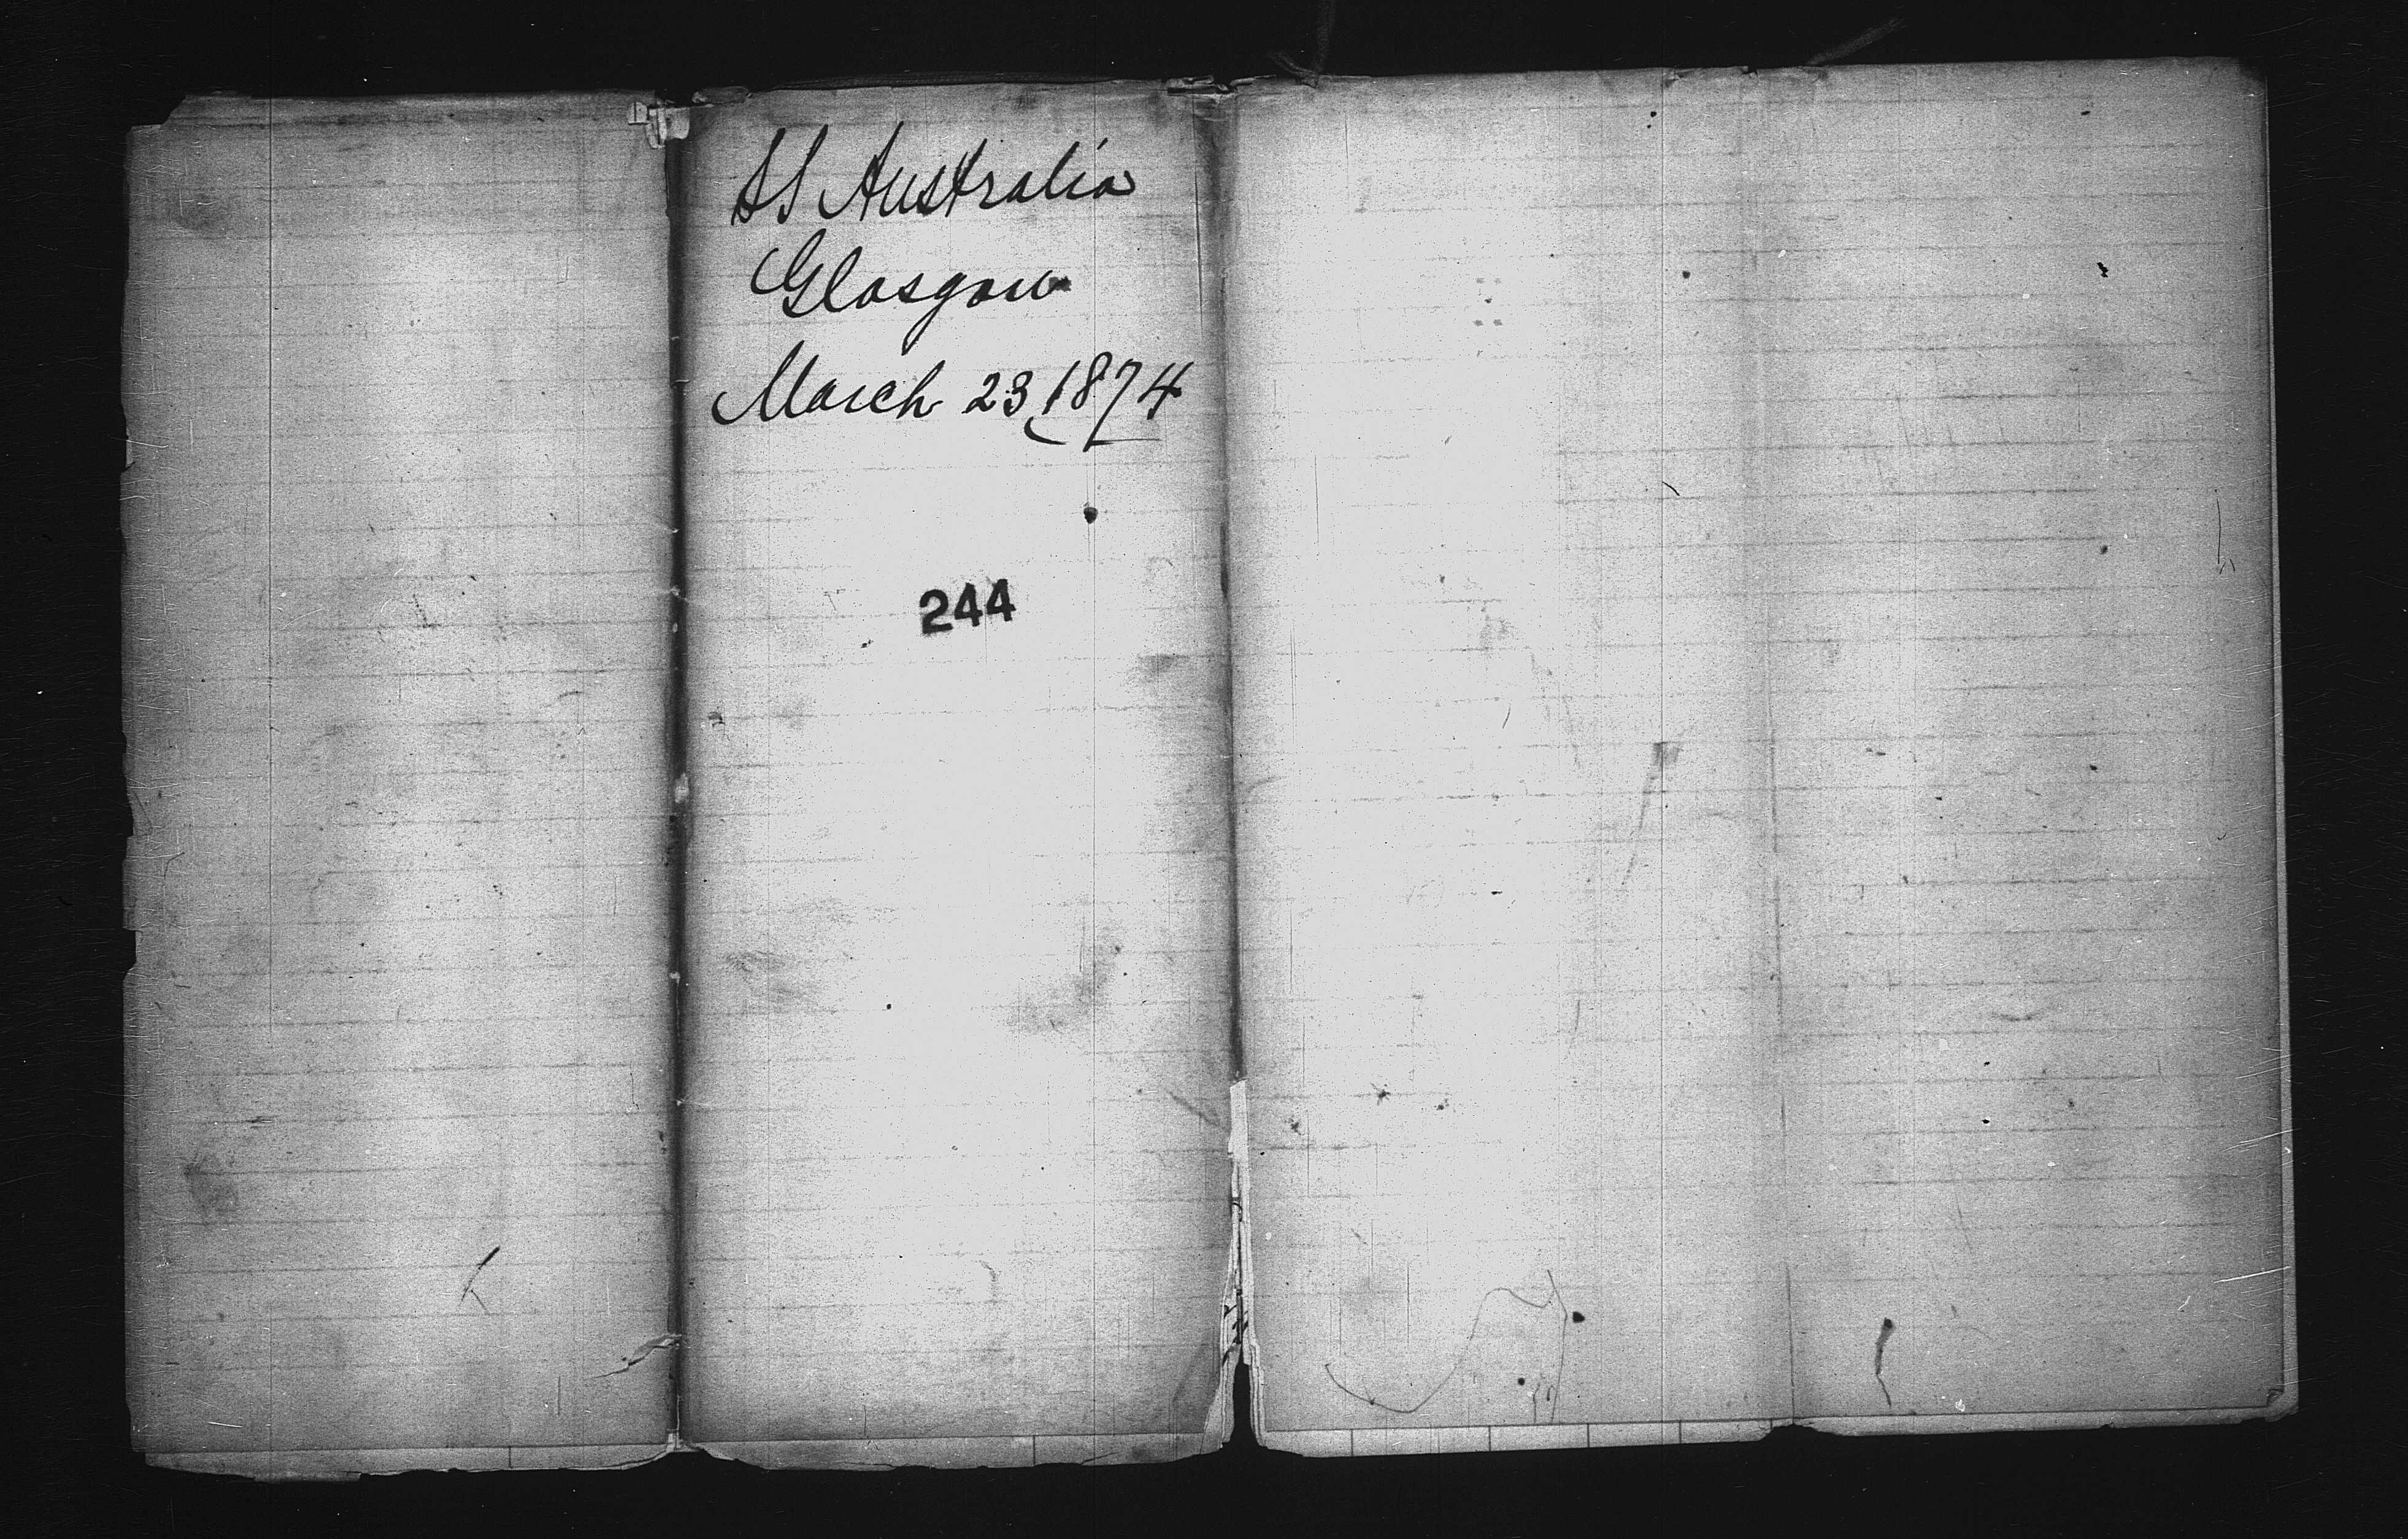 SS Australia
Glasgow
March 23 1874
244